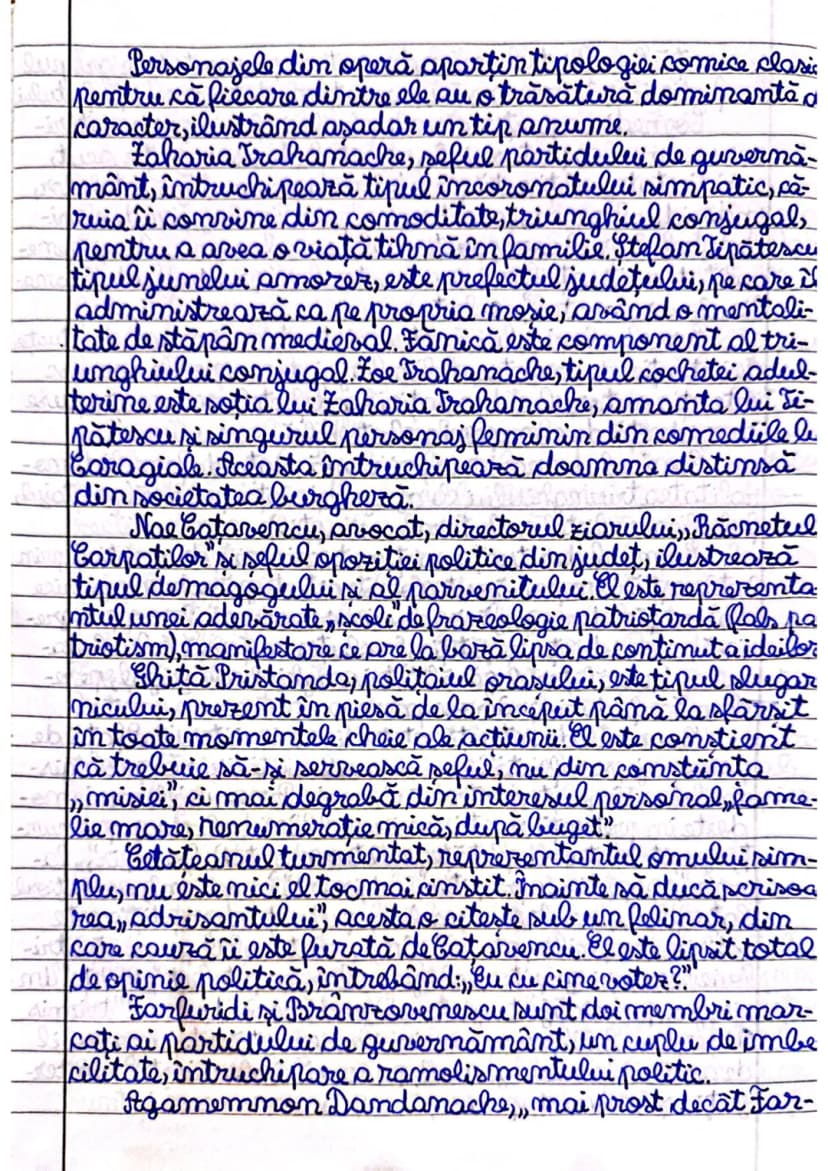 Personajele din operă aparțin tipologiei comice clasic
pentru că fiecare dintre ele au o trăsătură dominantă d
caracter, ilustrând așadar un tip anume.
Zaharia Trahanache, șeful partidului de guvernă-
mânt, întruchipează tipul încoronatului simpatic, că-
ruia îi convine din comoditate, triunghiul conjugal,
pentru a avea o viață tihnă în familie. Ștefan Tipătescu
tipul junelui amorez, este prefectul județului, pe care îl
administrează ca pe propria moșie, având o mentali-
tate de stăpân medieval. Fănică este component al tri-
unghiului conjugal. Zoe Trahanache, tipul cochetei adul-
terine este soția lui Zaharia Trahanache, amanta lui Ti-
pătescu și singurul personaj feminin din comediile lu
Caragiale. Aceasta întruchipează doamna distinsă
din societatea burgheză.
Nae Cațavencu, avocat, directorul ziarului „Răcnetul
Carpaților" și șeful opoziției politice din județ, ilustrează
tipul demagogului și al parvenitului. El este reprezenta
ntul unei adevărate „școli" de frazeologie patriotardă (fals pa
triotism), manifestare ce are la bază lipsa de conținut a ideilor
Ghiță Pristanda, polițaiul orașului, este tipul slugar
nicului, prezent în piesă de la început până la sfârșit
în toate momentele cheie ale acțiunii. El este conștient
că trebuie să-și servească șeful, nu din conștiința
„misiei", ci mai degrabă din interesul personal „fame-
lie mare, renumerație mică, după buget"
Cetățeanul turmentat, reprezentantul omului sim-
plu, nu este nici el tocmai cinstit. Înainte să ducă scrisoa
rea „adrisantului", acesta o citește sub un felinar, din
care cauză îi este furată de Cațavencu. El este lipsit total
de opinie politică, întrebând: „Eu cu cine votez?"
Farfuridi și Brânzovenescu sunt doi membri mar-
cați ai partidului de guvernământ, un cuplu de imbe
cilitate, întruchipare a ramolismentului politic.
Agamemnon Dandanache, „mai prost decât Far-